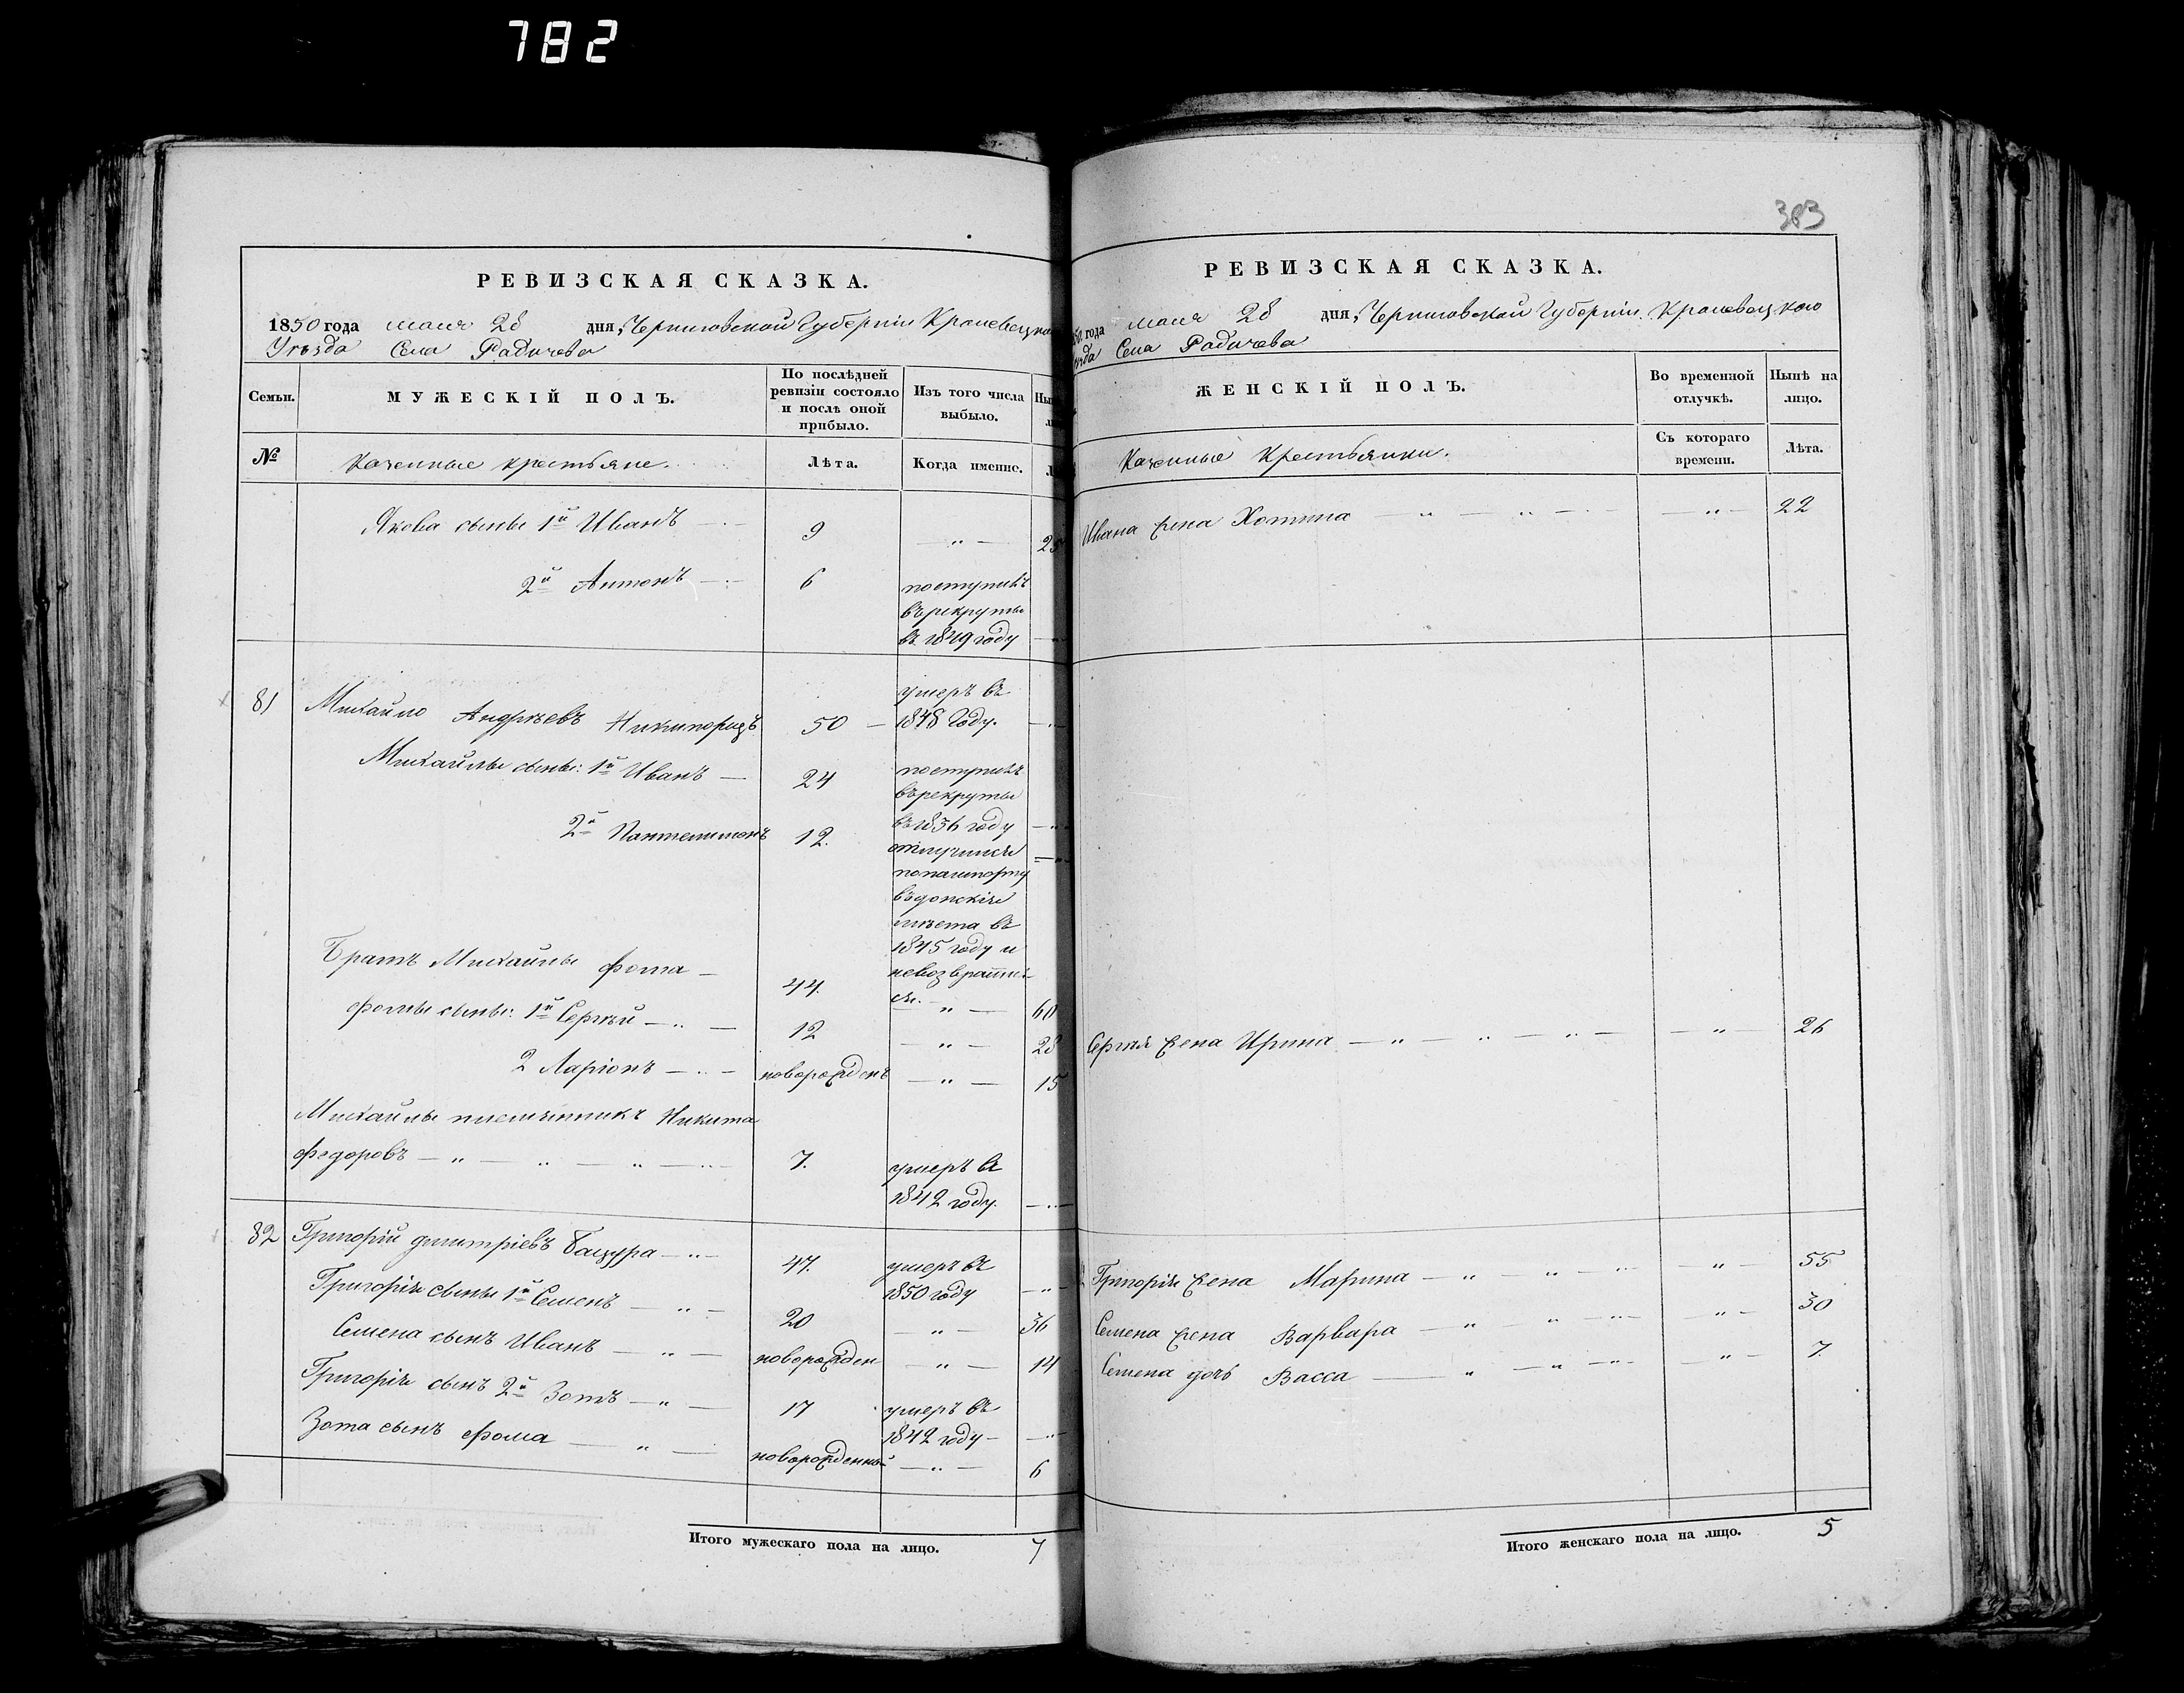 782
РЕВИЗСКАЯ СКАЗКА.
1850 года мая 28 дня, Черниговской Губерніи Кролевецкаго
Уѣзда Села Радичева
Семьи.
МУЖЕСКІЙ ПОЛЪ.
По послѣдней
ревизіи состояло
и послѣ оной
прибыло.
Изъ того числа
выбыло.
№
Казенные крестьяне.
Лѣта.
Когда именно.
Якова сыны 1й Иванъ 9 25
2й Антонъ 6 поступилъ
въ рекруты
въ 1849 году
81 Михайло Андрѣевъ 50 умеръ въ
1848 году.
Михайлы сыны: 1й Иванъ 24 поступилъ
въ рекруты
въ 1836 году
2й Пантелимонъ 12. отлучился
по пашпорту
въ донскія
мѣста въ
1845 году и
невозвратил
ся.
Братъ Михайлы Фома 44. 60
Фомы сыны: 1й Сергѣй 12 28
2 Ларіонъ новорожденъ 15
Михайлы племянникъ Никита
Федоровъ 7. умеръ въ
1842 году.
82 Григорій Дмитріевъ Бацура 47. умеръ въ
1850 году
Григорія сыны 1й Семенъ 20 36
Семена сынъ Иванъ новорожден 14
Григорія сынъ 2й Зотъ 17 умеръ въ
1842 году
Зота сынъ Фома новорожденный 6
Итого мужескаго пола на лицо. 7
383
РЕВИЗСКАЯ СКАЗКА.
года мая 28 дня, Черниговской Губерніи. Кролевецкаго
Села Радичева
ЖЕНСКІЙ ПОЛЪ.
Во временной
отлучкѣ.
Нынѣ на
лицо.
Казенные Крестьянки.
Съ котораго
времени.
Лѣта.
Ивана жена 22
Сергѣя жена Ирина 26
Григорія жена Марина 55
Семена жена Варвара 30
Семена дочь Васса 7
Итого женскаго пола на лицо. 5